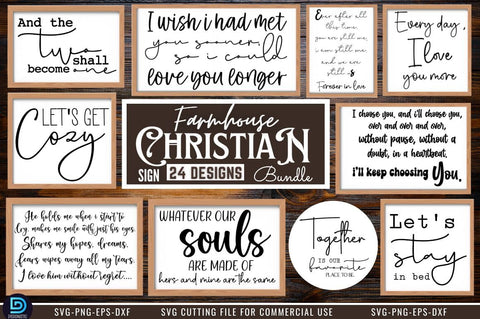 And the
two
shall
become one
I wish i had met
you sooner
so i could
love you longer
Ever after all
this time,
you are still me,
i am still me,
and we are
still us
Forever in love
Every day,
I love
you more
LET'S GET
Cozy
Farmhouse
CHRISTIAN
SIGN 24 DESIGNS Bundle
I choose you, and i'll choose you,
over and over and over,
without pause, without a
doubt, in a heartbeat,
i'll keep choosing You.
He holds me when i start to
cry, makes me smile with just his eyes
Shares my hopes, dreams,
fears wipes away all my tears.
I love him without regret....
WHATEVER OUR
souls
ARE MADE OF
hers and mine are the same
Together
IS OUR
favorite
PLACE TO BE
Let's
stay
in bed
SVG-PNG-EPS-DXF
SVG CUTTING FILE FOR COMMERCIAL USE
SVG-PNG-EPS-DXF